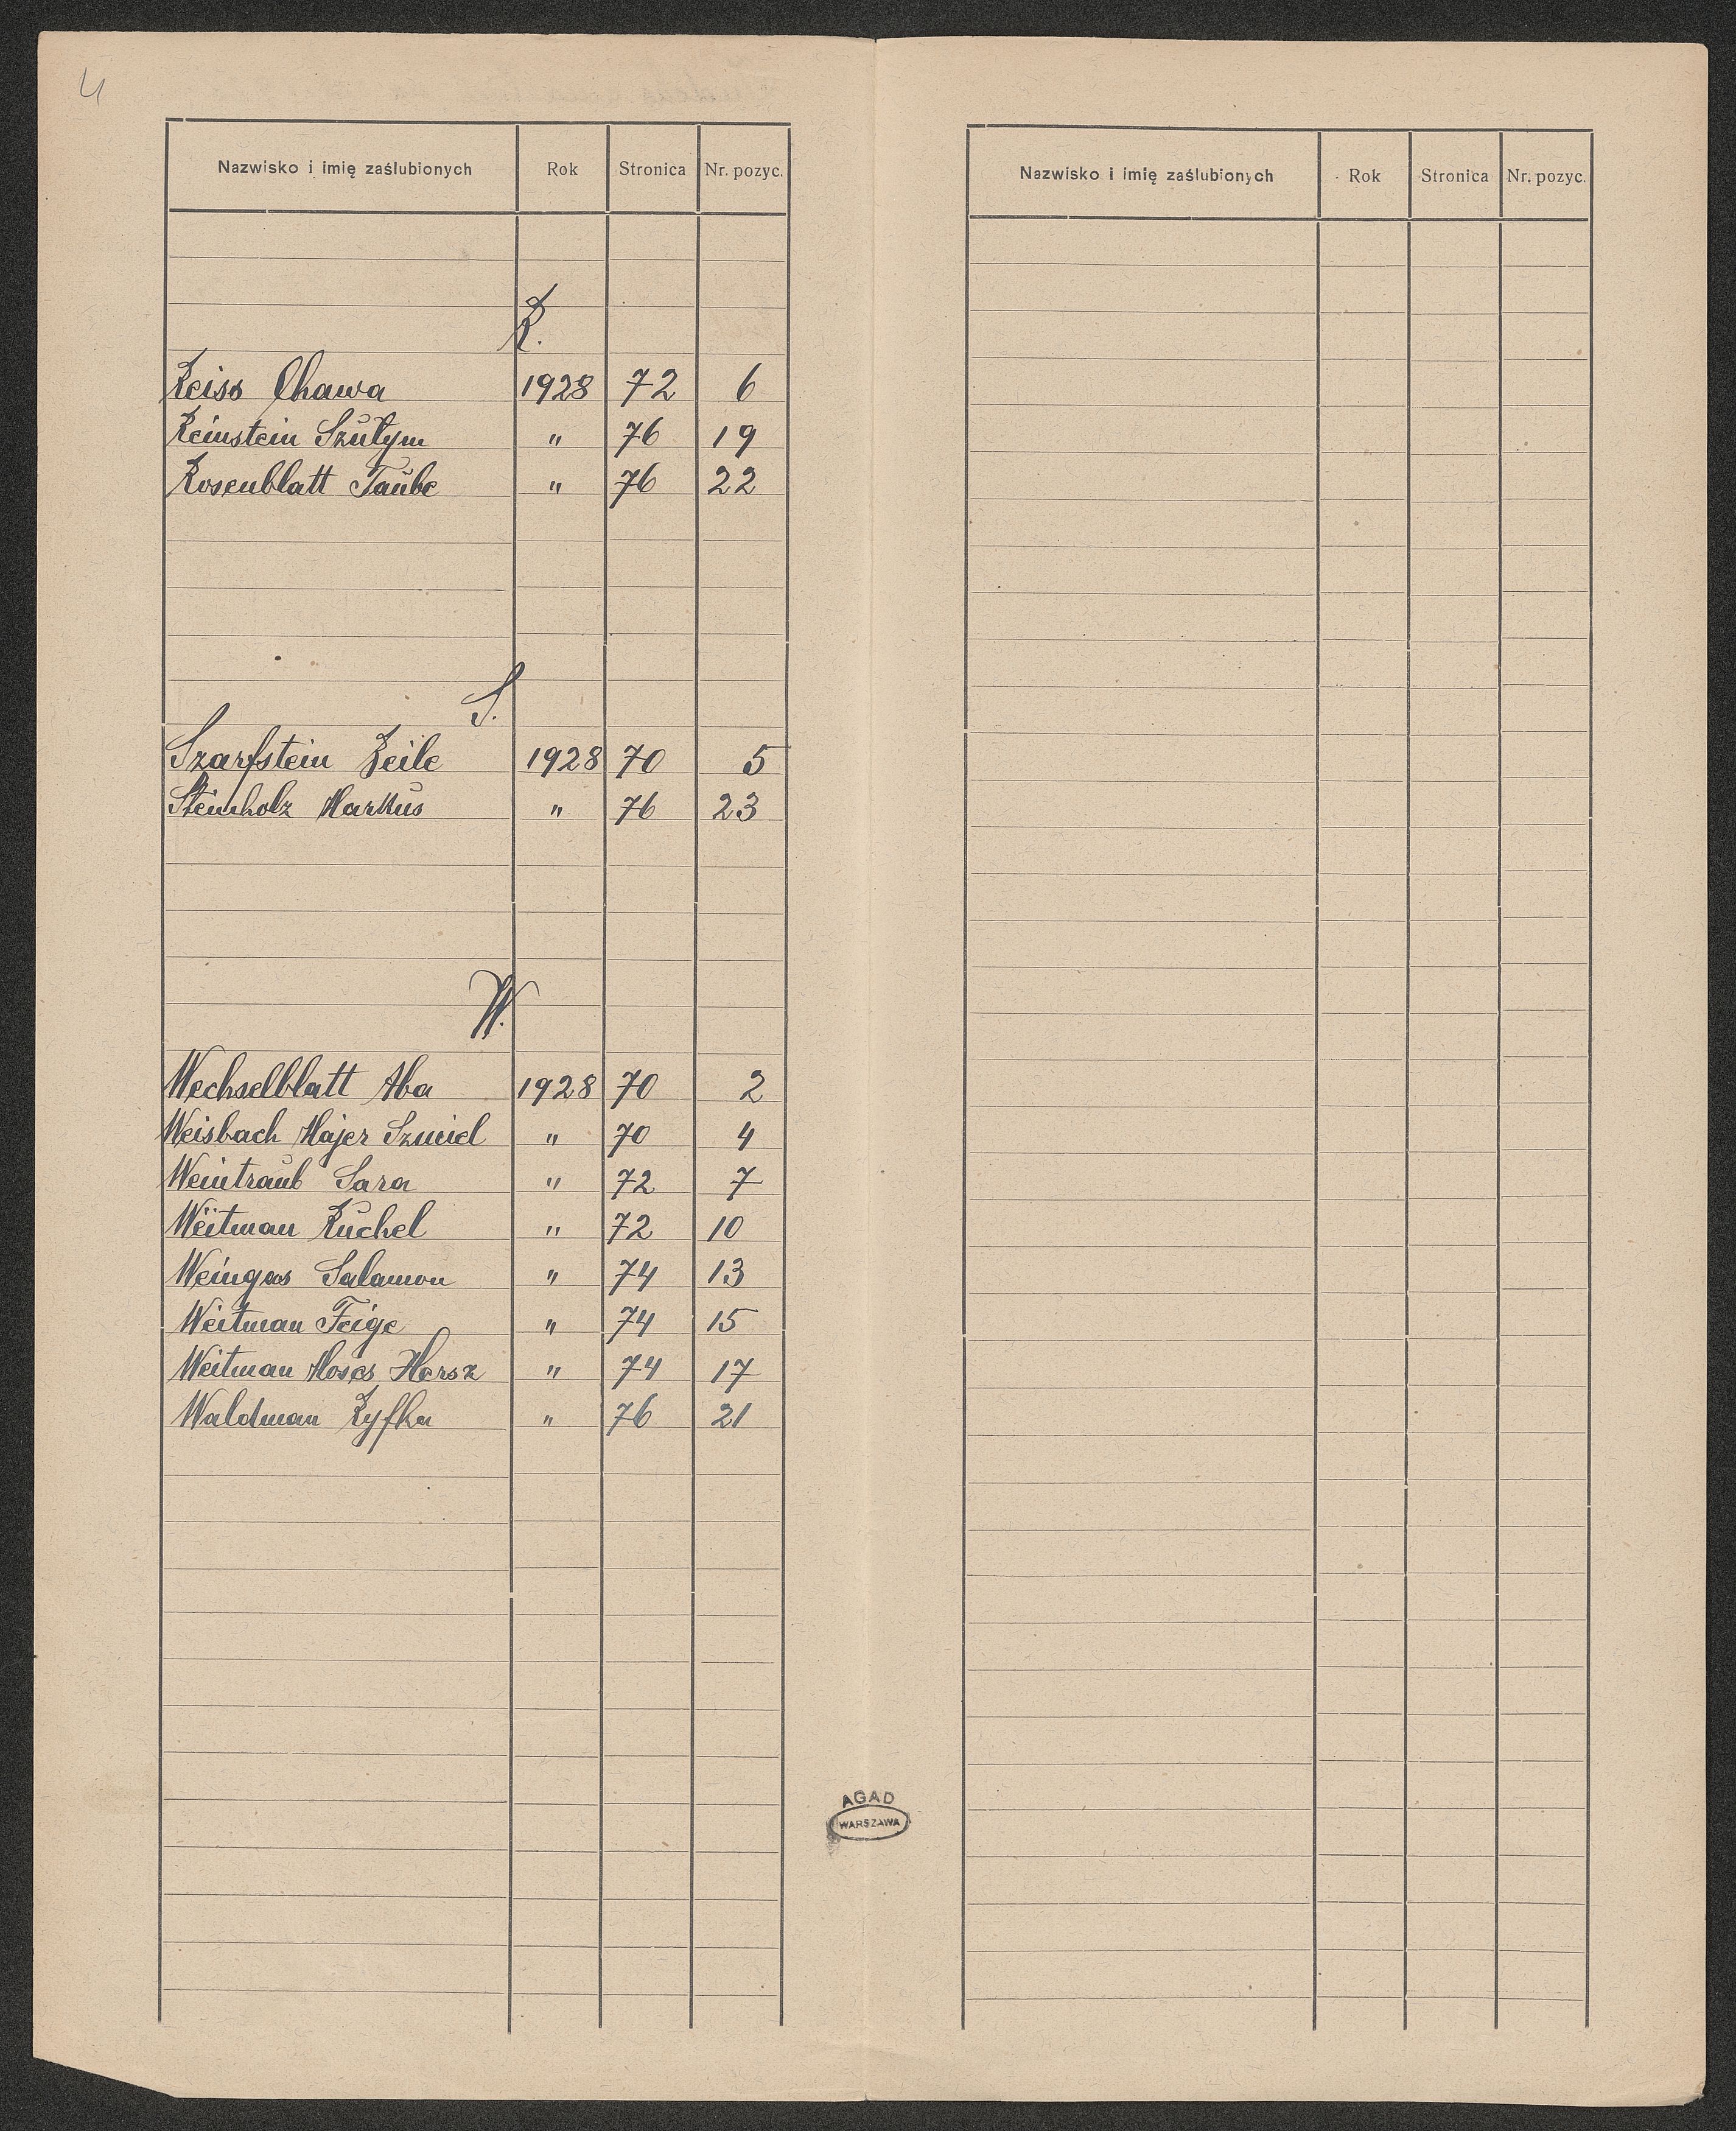 4
Nazwisko i imię zaślubionych Rok Stronica Nr. pozyc.
R.
Reiss Chawa 1928 72 6
Reinstein Szulym " 76 19
Rosenblatt Taube " 76 22
S.
Szarfstein Beile 1928 70 5
Steinholz Markus " 76 23
W.
Wechselblatt Aba 1928 70 2
Weisbach Majer Szmiel " 70 4
Weintraub Sara " 72 7
Weitman Ruchel " 72 10
Weingas Salamon " 74 13
Weitman Feige " 74 15
Weitman Moses Hersz " 74 17
Waldman Ryfka " 76 21
Nazwisko i imię zaślubionych Rok Stronica Nr. pozyc.
AGAD
WARSZAWA